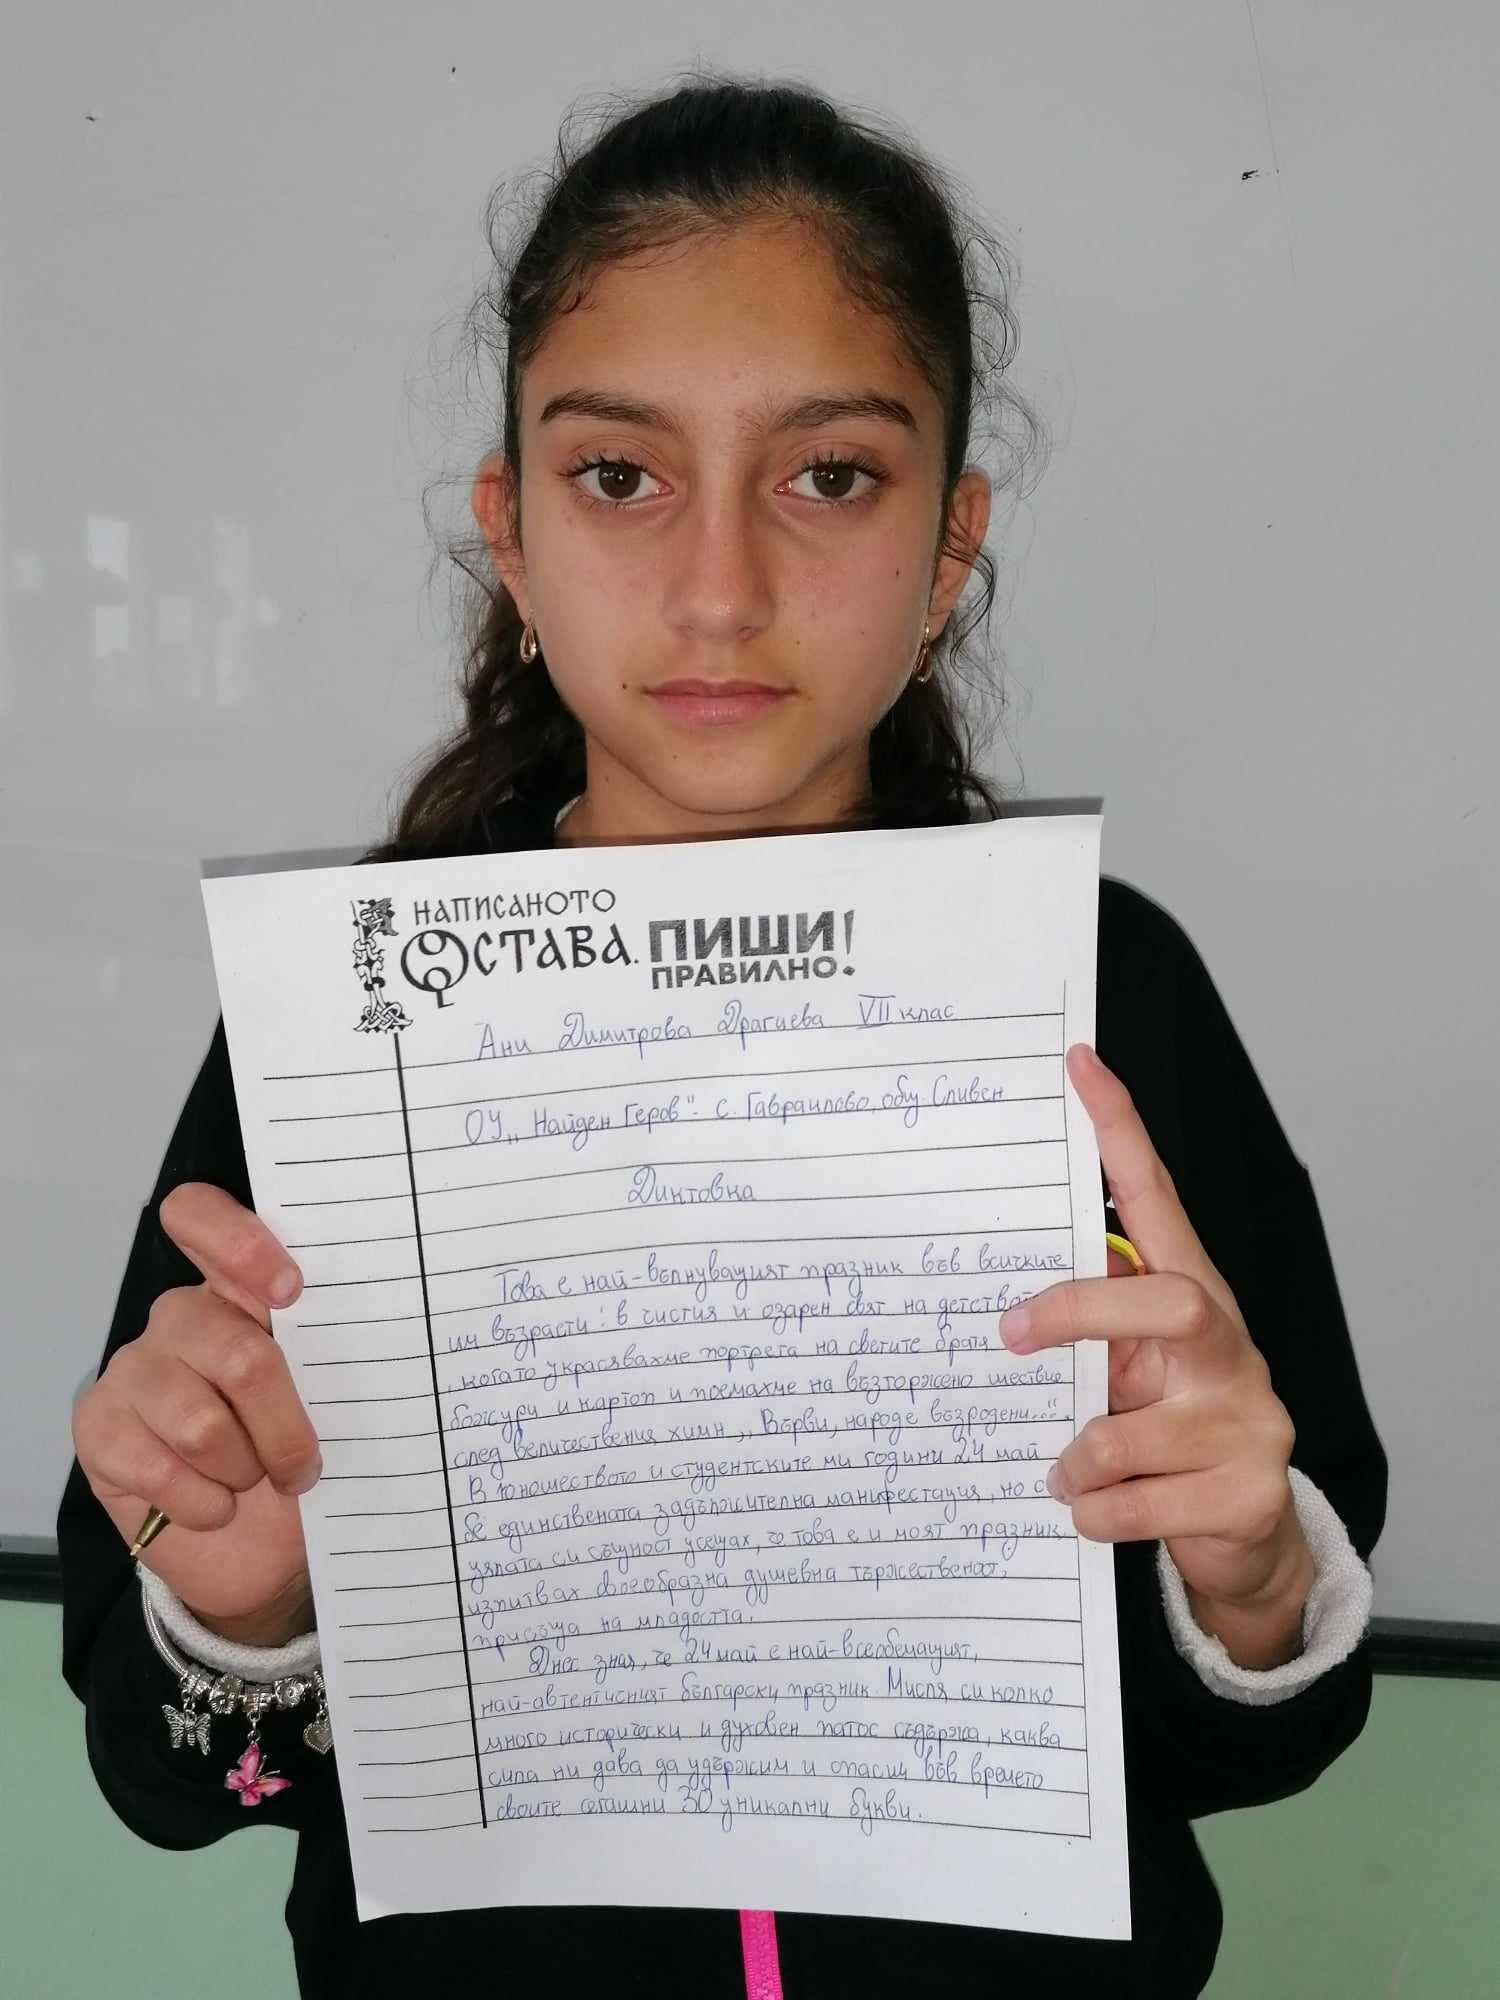 НАПИСАНОТО
ОСТАВА. ПИШИ
ПРАВИЛНО!
Ани Димитрова Драгиева VII клас
ОУ „Найден Геров"- с. Гавраилово, общ. Сливен
Диктовка
Това е най-вълнуващият празник във всичките
ми възрасти: в чистия и озарен свят на
, когато украсявахме портрета на светите братя
божури и картоп и поемахме на възторжено шествие
след величествения химн „Върви, народе възродени...".
В юношеството и студентските ми години 24 май
бе единствената задължителна манифестация, но с
цялата си същност усещах, че това е и моят празник,
изпитвах своеобразна душевна тържественост,
присъща на младостта.
Днес зная, че 24 май е най-всеобемащият,
най-автентисният български празник. Мисля си колко
много исторически и духовен патос съдържа, каква
сила ни дава да удържим и спасим във времето
своите сегашни 30 уникални букви.